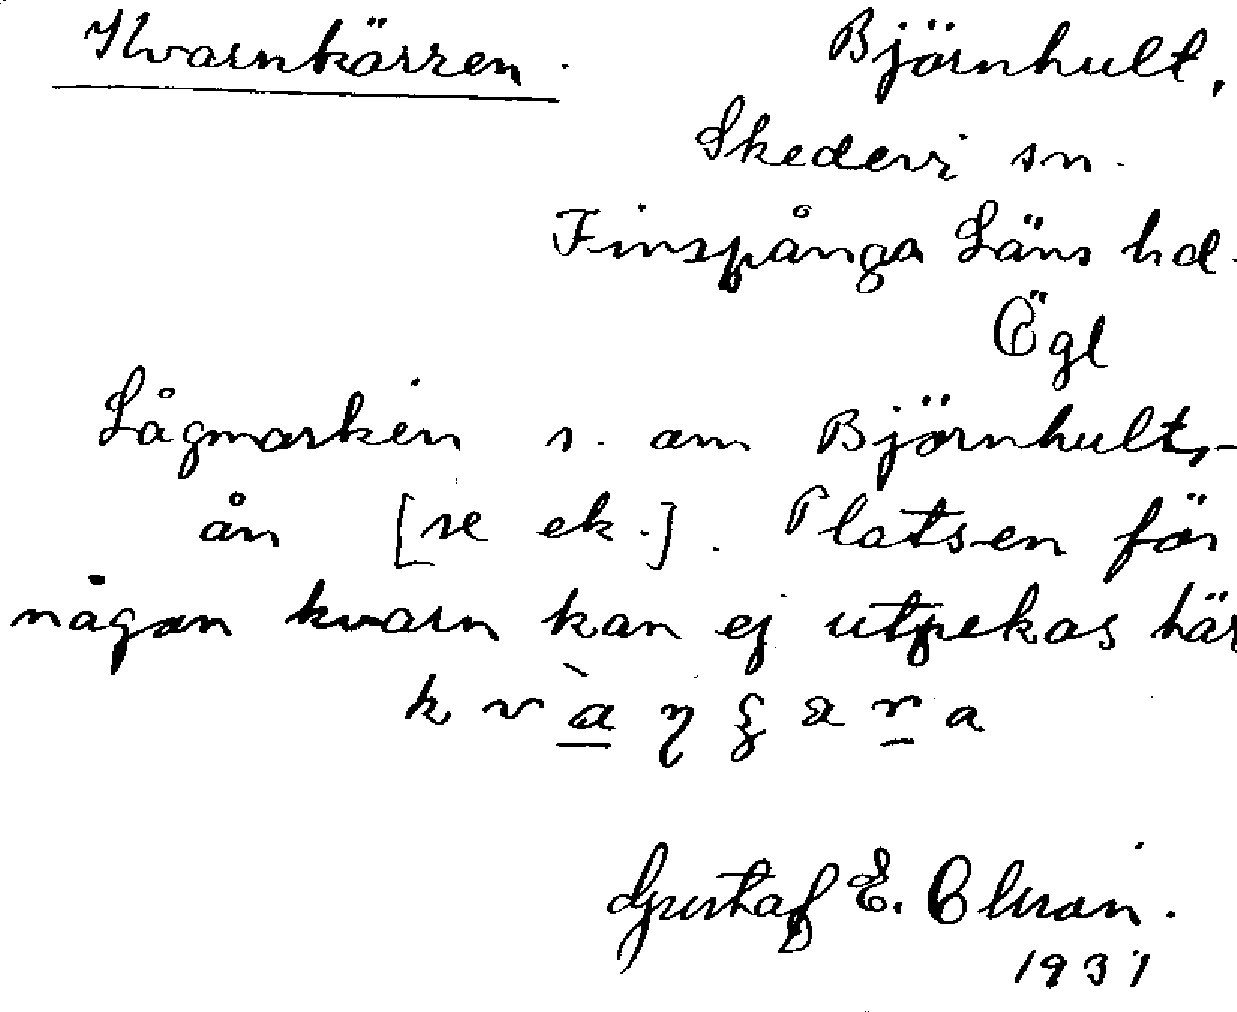 Kvarnkärren.
Björnhult,
Skedevi sn.
Finspånga Läns hd.
Ögl
Lågmarken s. om Björnhults-
ån [se ek.]. Platsen för
någon kvarn kan ej utpekas här
Gustaf E.
1931